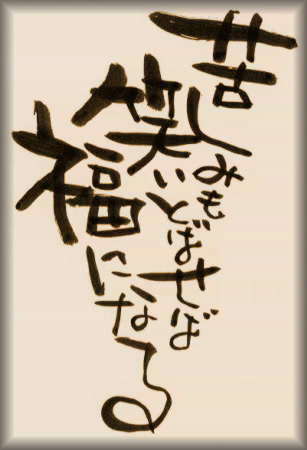 苦しみも
笑いとばせば
福になる